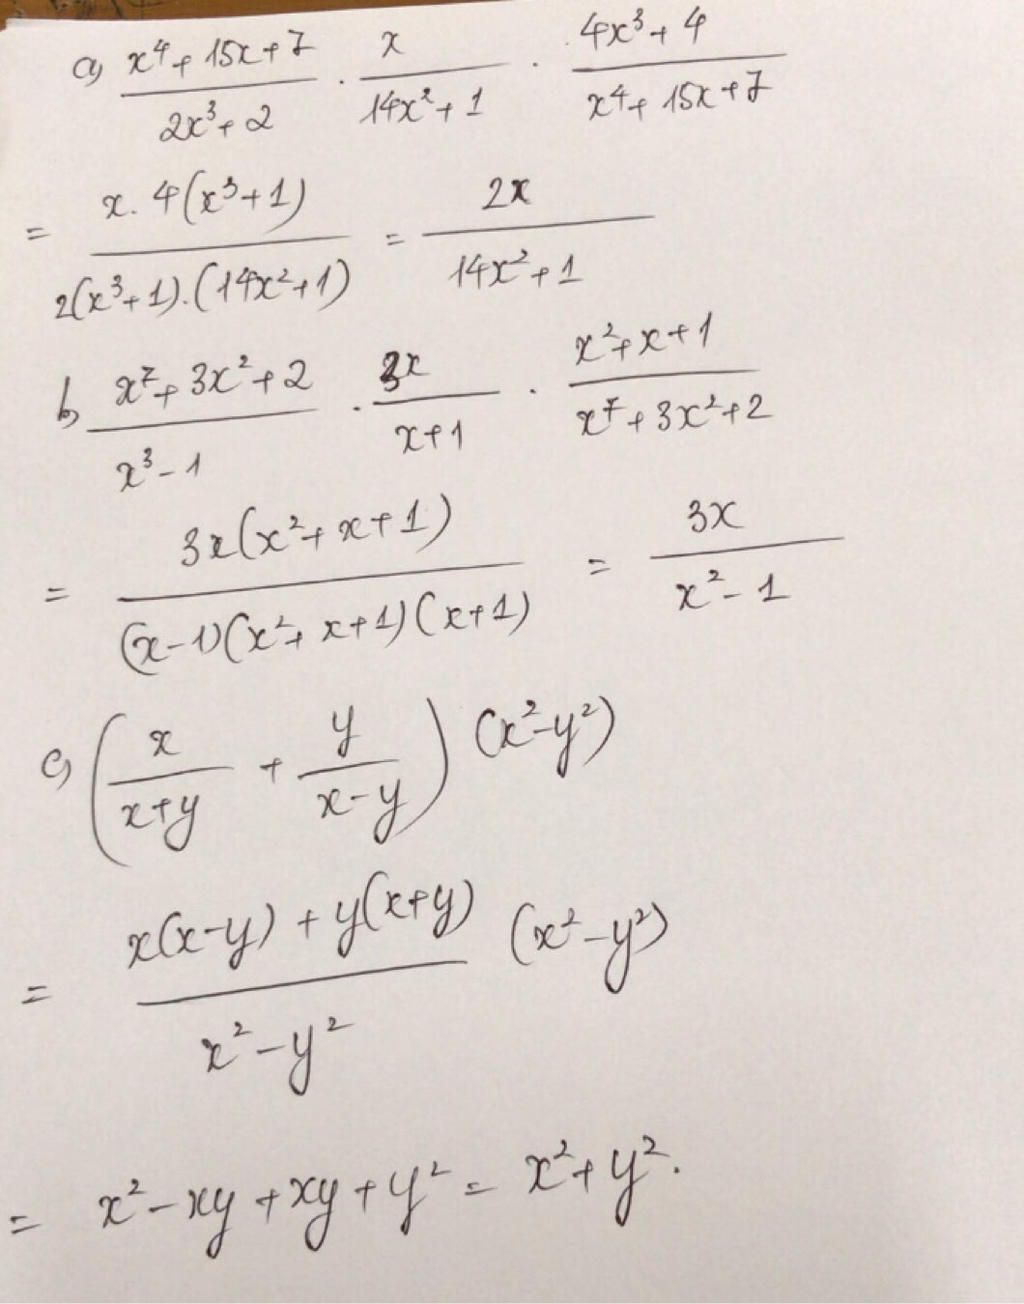 a) \frac{x^4+15x+7}{2x^3+2} \cdot \frac{x}{14x^2+1} \cdot \frac{4x^3+4}{x^4+15x+7}
= \frac{x.4(x^3+1)}{2(x^3+1).(14x^2+1)} = \frac{2x}{14x^2+1}
b) \frac{x^7+3x^2+2}{x^3-1} \cdot \frac{3x}{x+1} \cdot \frac{x^2+x+1}{x^7+3x^2+2}
= \frac{3x(x^2+x+1)}{(x-1)(x^2+x+1)(x+1)} = \frac{3x}{x^2-1}
c) \left(\frac{x}{x+y} + \frac{y}{x-y}\right)(x^2-y^2)
= \frac{x(x-y)+y(x+y)}{x^2-y^2}(x^2-y^2)
= x^2-xy+xy+y^2 = x^2+y^2.